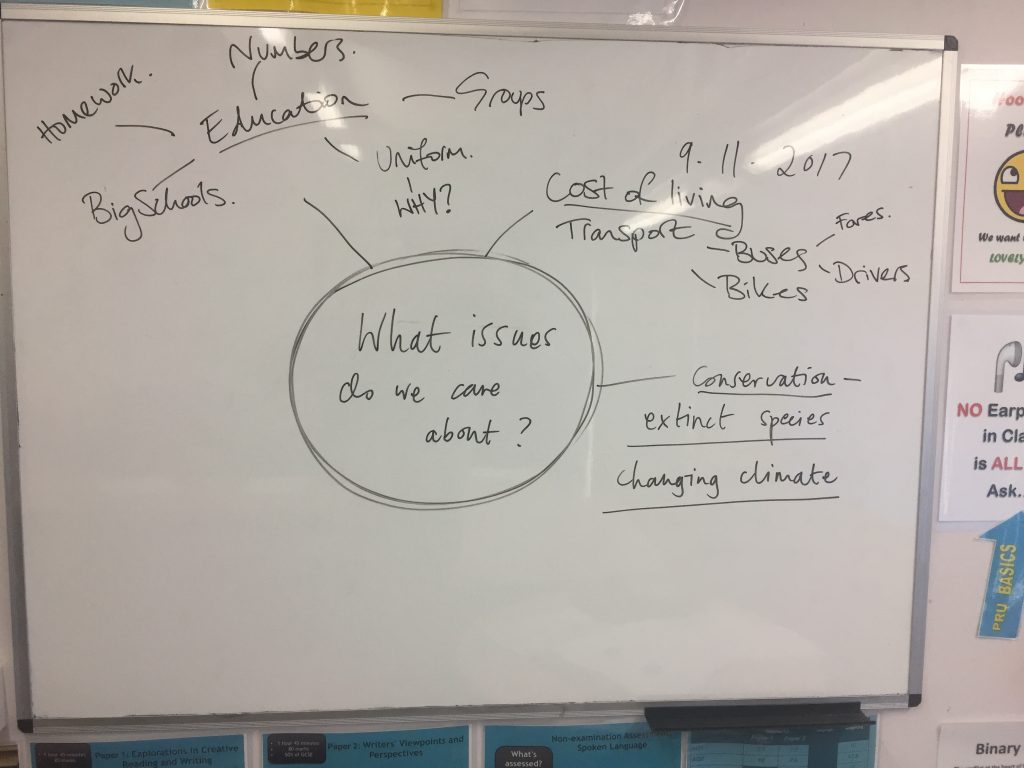 Numbers.
Homework.
Education
Groups
Uniform.
WHY?
Big Schools.
9.11.2017
Cost of living
Transport
Buses
Fares.
Drivers
Bikes
What issues
do we care
about?
Conservation -
extinct species
changing climate
We want
LOVELY
NO Earp
in Cla
is ALL
Ask..
PRU BASICS
Binary
Paper 1: Explorations in Creative
Reading and Writing
Paper 2: Writers' Viewpoints and
Perspectives
Non-examination Assess
Spoken Language
What's
assessed?